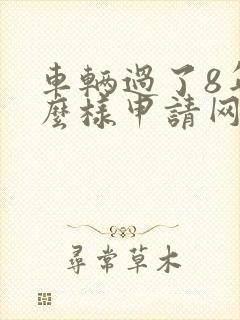 車輛過了8年
麼樣申請网
尋常草木